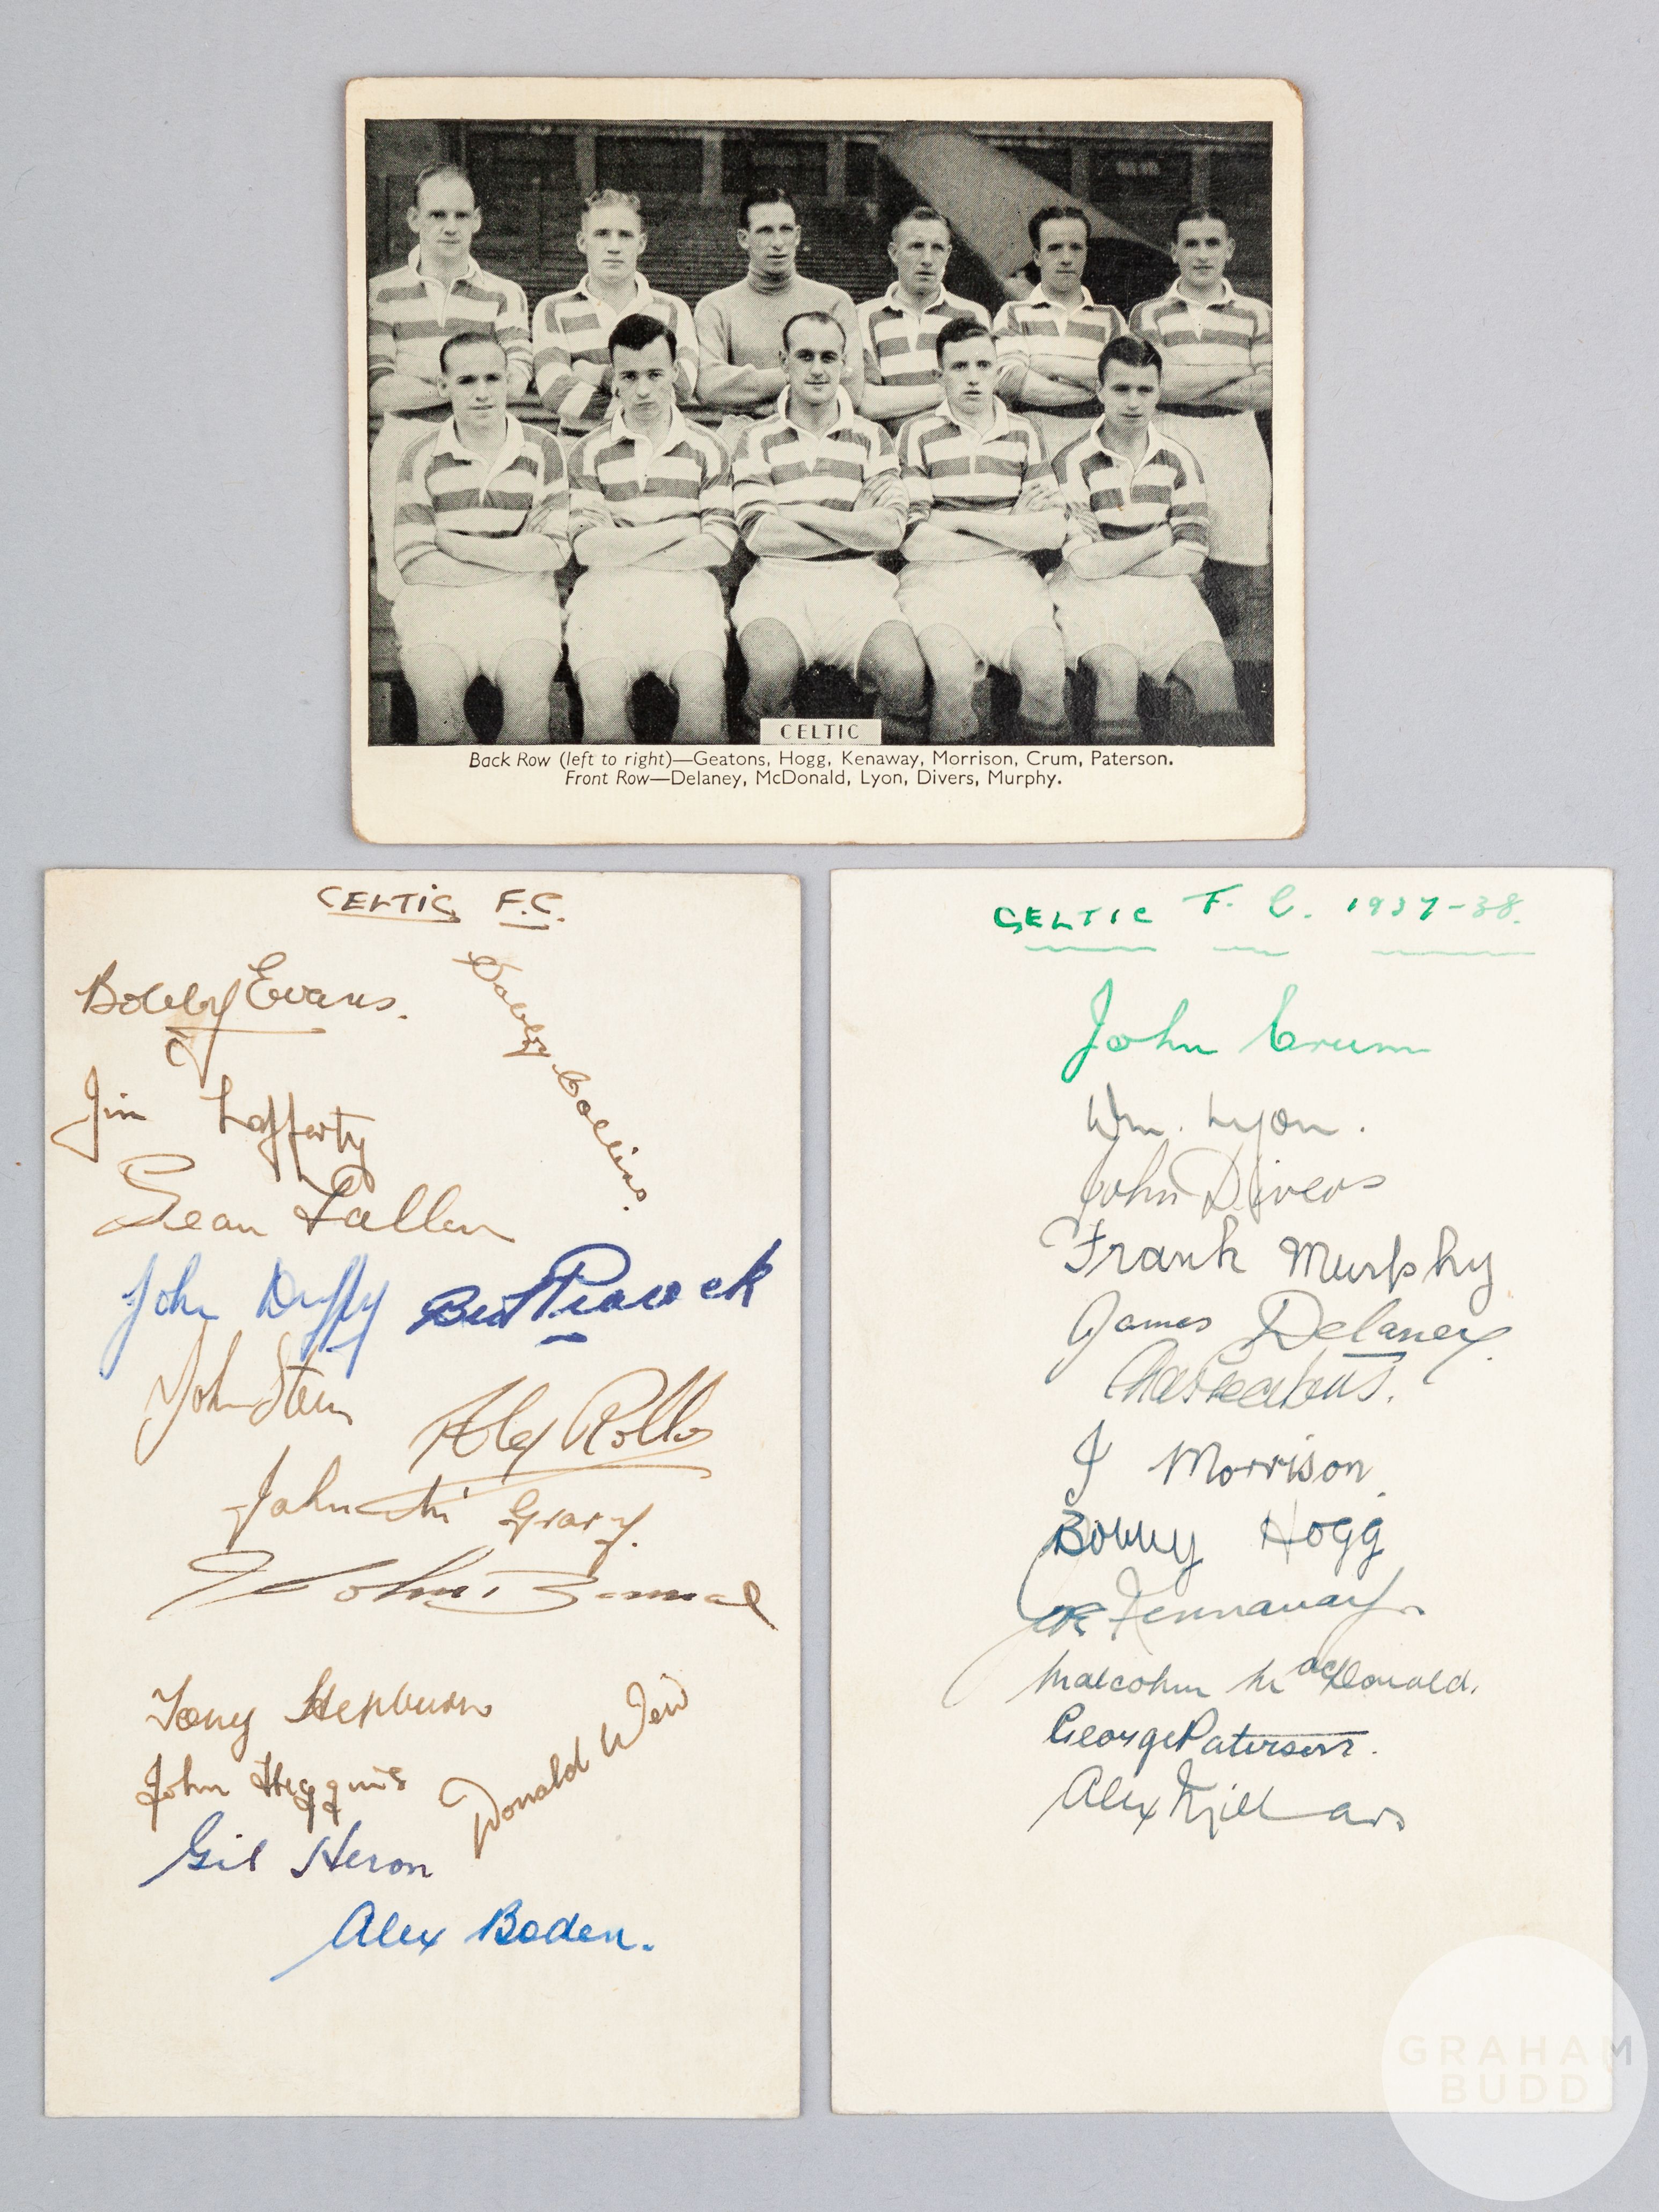 CELTIC
Back Row (left to right)—Geatons, Hogg, Kenaway, Morrison, Crum, Paterson.
Front Row—Delaney, McDonald, Lyon, Divers, Murphy.
CELTIC F.C.
Bobby Evans.
Bobby Collins.
Jim Lafferty
Sean Fallen
John Duffy
Bert Peacock
John Stein
Alex Rollo
John Mc Grory.
John Bonnar
Tony Hepburn
Donald Weir
John Higgins
Gil Heron
Alex Boden.
CELTIC F. C. 1937-38.
John Crum
Wm. Lyon.
John Divers
Frank Murphy
James Delaney.
Chas Geatons.
J Morrison.
Bobby Hogg
Joe Kennaway.
Malcolm MacDonald.
George Paterson.
Alex Millar
GRAHAM
BUDD